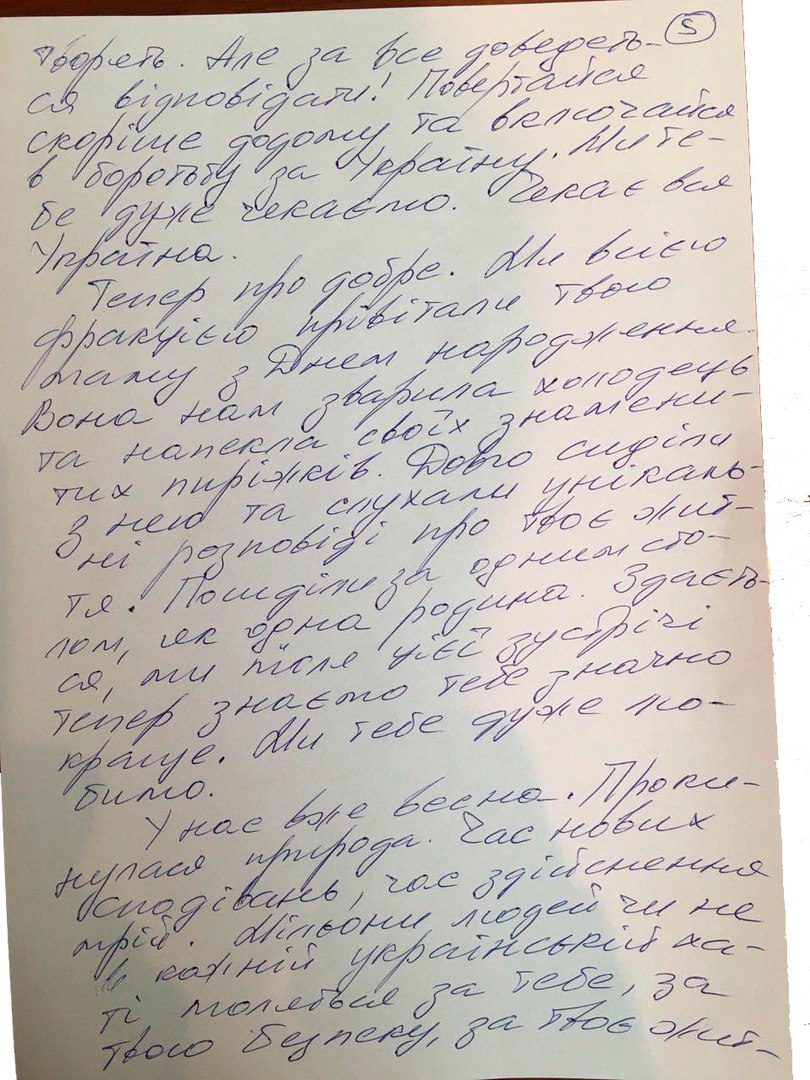 5
творять. Але за все доведеть-
ся відповідати! Повертайся
скоріше додому та включайся
в боротьбу за Україну. Ми те-
бе дуже чекаємо. Чекає вся
Україна.
Тепер про добре. Ми всією
фракцією привітали твою
маму з Днем народження.
Вона нам зварила холодець
та напекла своїх знамени-
тих пиріжків. Довго сиділи
з нею та слухали унікаль-
ні розповіді про твоє жит-
тя. Посиділи за одним сто-
лом, як одна родина. Здаєть-
ся, ми після цієї зустрічі
тепер знаємо тебе значно
краще. Ми тебе дуже лю-
бимо.
У нас вже весна. Проки-
нулася природа. Час нових
сподівань, час здійснення
мрій. Мільйони людей чи не
в кожній українській ха-
ті моляться за тебе, за
твою безпеку, за твоє жит-